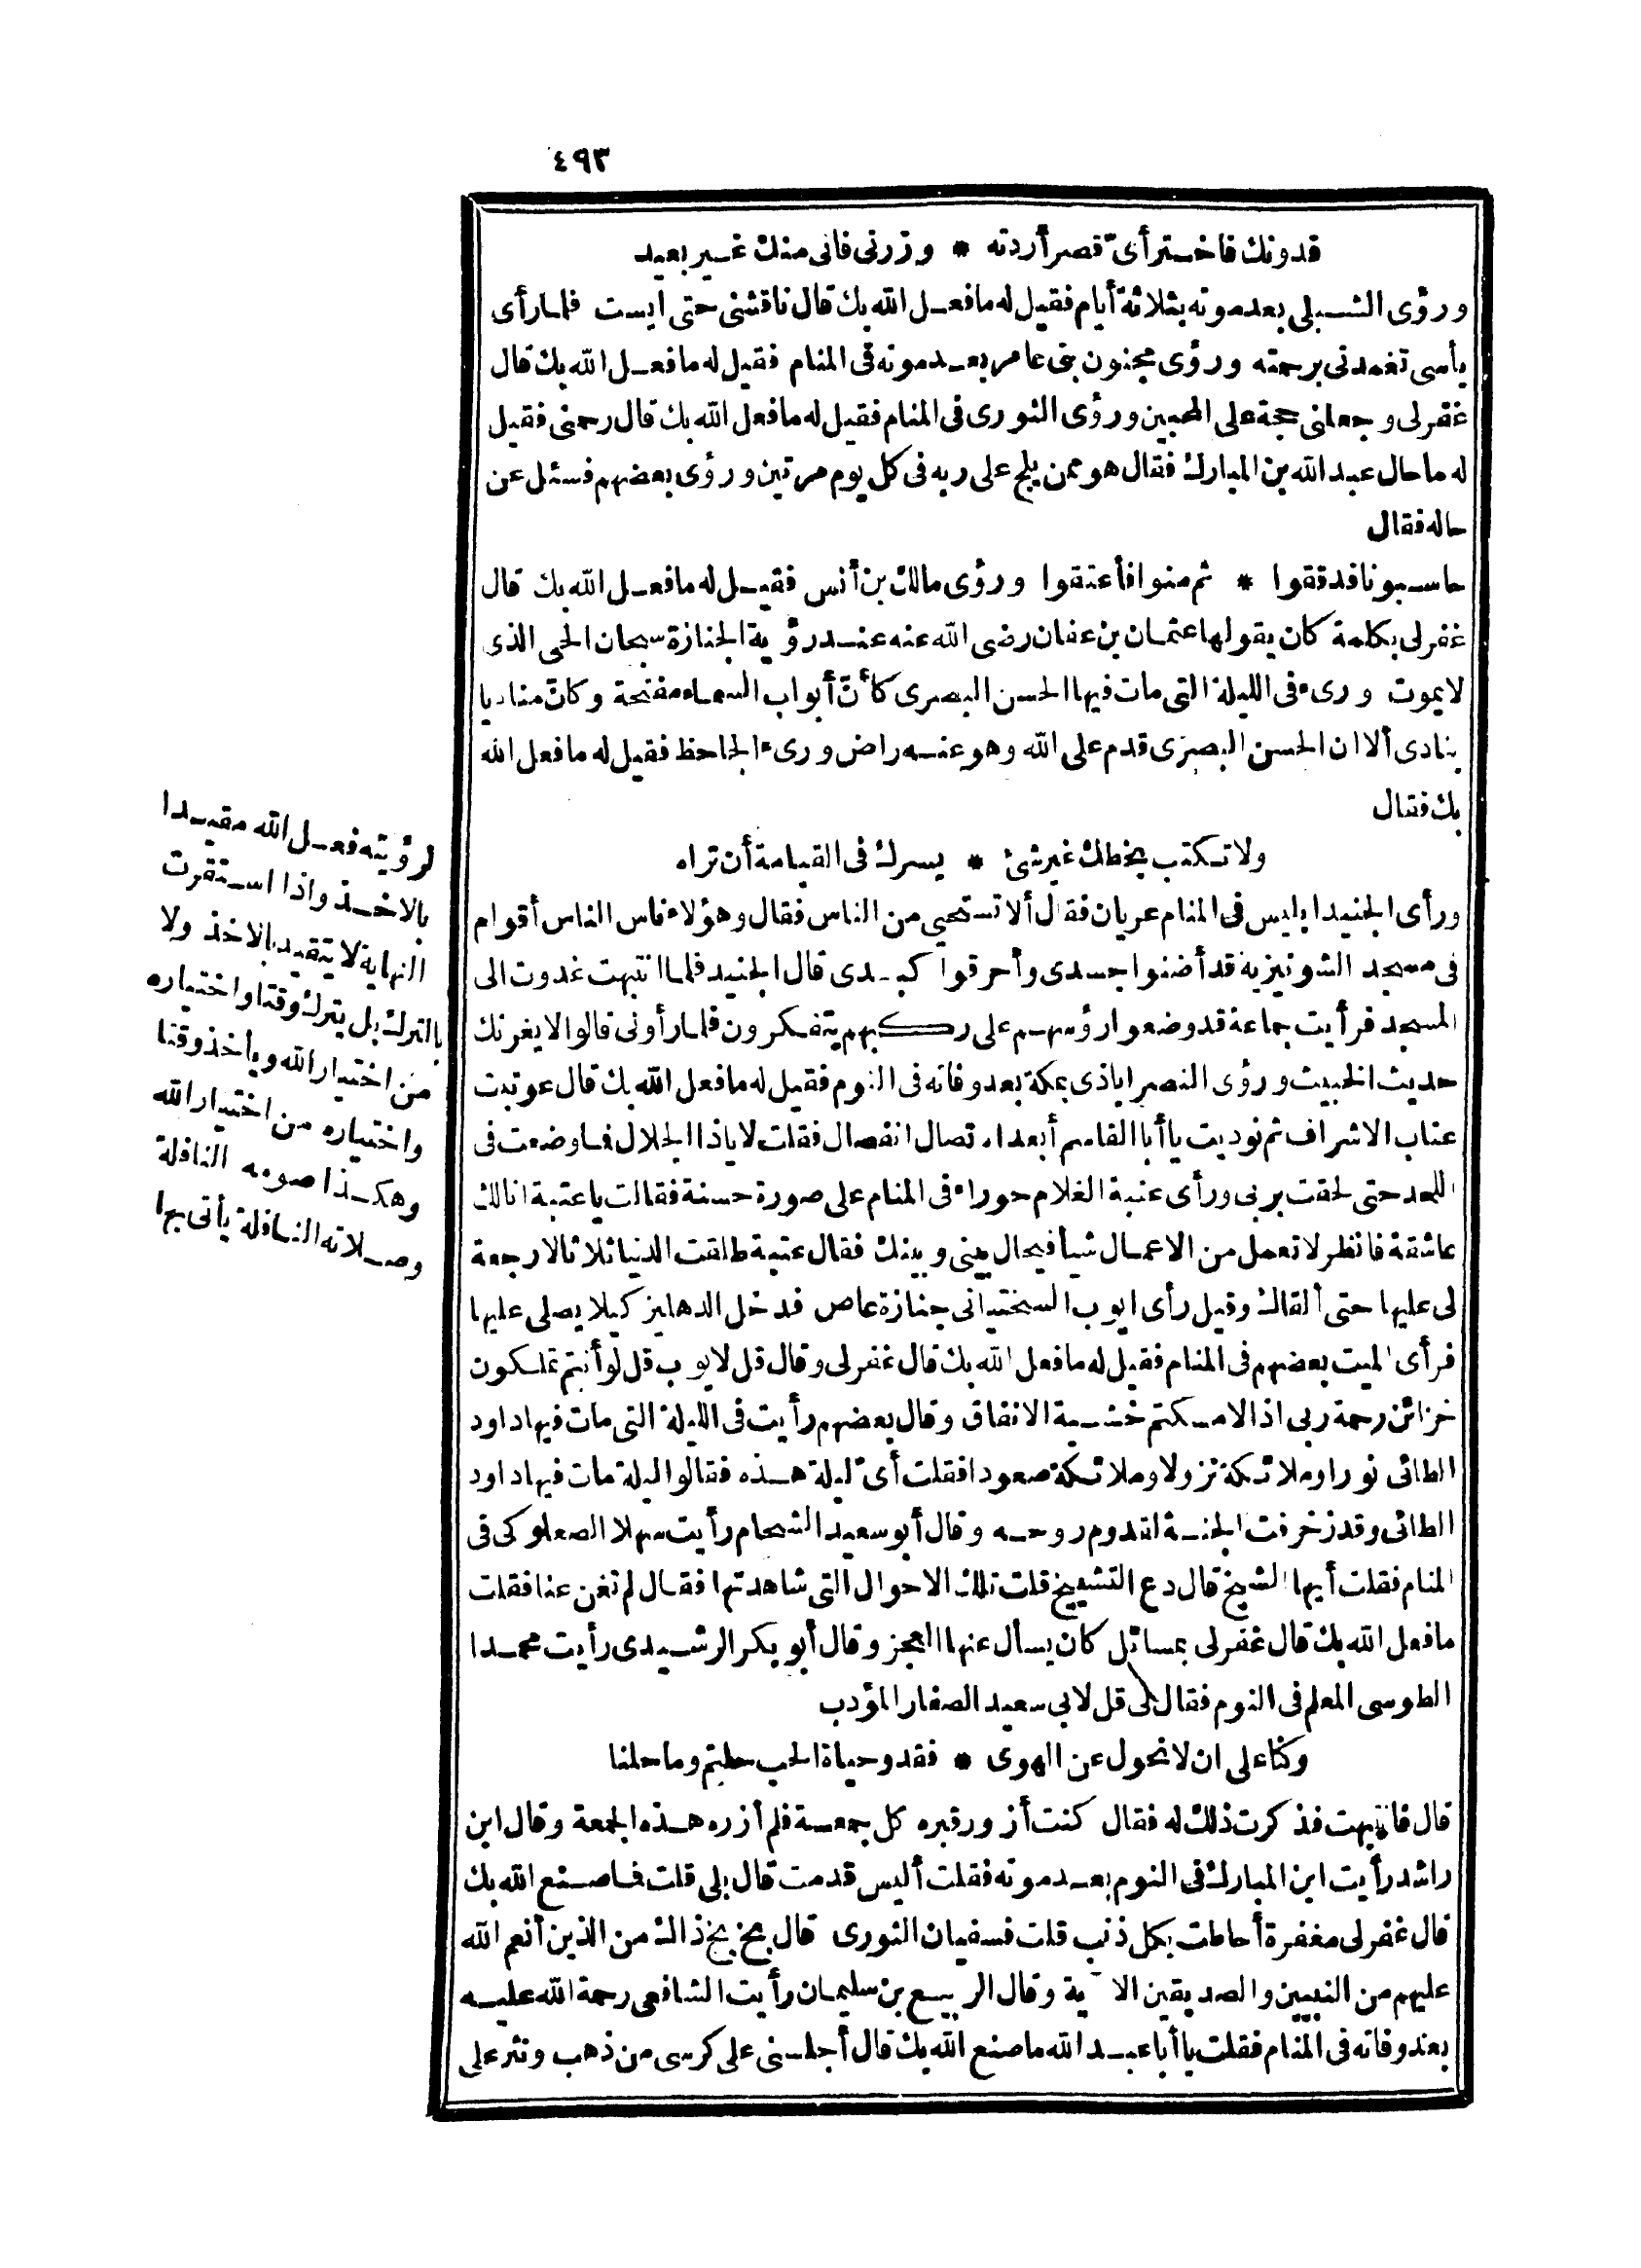 ٤٩٣
فدونك فاختر أى قصر أردته * وزرنى فانى منك غير بعيد
ورؤى الشبلى بعد موته بثلاثة أيام فقيل له ما فعل الله بك قال ناقشنى حتى أيست فلما رأى
يأسى تغمدنى برحمته ورؤى مجنون بنى عامر بعد موته فى المنام فقيل له ما فعل الله بك قال
غفر لى وجعلنى حجة على المحبين ورؤى الثورى فى المنام فقيل له ما فعل الله بك قال رحمنى فقيل
له ما حال عبد الله بن المبارك فقال هو ممن يلج على ربه فى كل يوم مرتين ورؤى بعضهم فسئل عن
حاله فقال
حاسبونا فدققوا * ثم منوا فأعتقوا ورؤى مالك بن أنس فقيل له ما فعل الله بك قال
غفر لى بكلمة كان يقولها عثمان بن عفان رضى الله عنه عند رؤية الجنازة سبحان الحى الذى
لا يموت ورىء فى الليلة التى مات فيها الحسن البصرى كأنّ أبواب السماء مفتحة وكانّ مناديا
ينادى ألا ان الحسن البصرى قدم على الله وهو عنه راض ورىء الجاحظ فقيل له ما فعل الله
بك فقال
ولا تكتب بخطك غير شئ * يسرك فى القيامة أن تراه
ورأى الجنيد ابليس فى المنام عريان فقال ألا تستحيى من الناس فقال وهؤلاء ناس الناس أقوام
فى مسجد الشونيزية قد أضنوا جسدى وأحرقوا كبدى قال الجنيد فلما انتبهت غدوت الى
المسجد فرأيت جماعة قد وضعوا رؤسهم على ركبهم يتفكرون فلما رأونى قالوا لا يغرنك
حديث الخبيث ورؤى النصراباذى بمكة بعد وفاته فى النوم فقيل له ما فعل الله بك قال عوتبت
عتاب الاشراف ثم نوديت يا أبا القاسم أبعد الاتصال انفصال فقلت لا ياذا الجلال فما وضعت فى
اللحد حتى لحقت بربى ورأى عتبة الغلام حوراء فى المنام على صورة حسنة فقالت يا عتبة انا لك
عاشقة فانظر لا تعمل من الاعمال شيأ فيحال بينى وبينك فقال عتبة طلقت الدنيا ثلاثا لا رجعة
لى عليها حتى ألقاك وقيل رأى ايوب السختيانى جنازة عاص فدخل الدهليز كيلا يصلى عليها
فرأى الميت بعضهم فى المنام فقيل له ما فعل الله بك قال غفر لى وقال قل لايوب قل لو أنتم تملكون
خزائن رحمة ربى اذا لامسكتم خشية الانفاق وقال بعضهم رأيت فى الليلة التى مات فيها داود
الطائى نورا وملائكة نزولا وملائكة صعودا فقلت أىّ ليلة هذه فقالوا ليلة مات فيها داود
الطائى وقد زخرفت الجنة لقدوم روحه وقال أبو سعيد الشحام رأيت سهلا الصعلوكى فى
المنام فقلت أيها الشيخ قال دع التشييخ قلت تلك الاحوال التى شاهدتها فقال لم تغن عنا فقلت
ما فعل الله بك قال غفر لى بمسائل كان يسأل عنها العجز وقال أبو بكر الرشيدى رأيت محمدا
الطوسى المعلم فى النوم فقال لى قل لابى سعيد الصفار المؤدب
وكنا على ان لا نحول عن الهوى * فقد وحياة الحب حلتم وما حلنا
قال فانتبهت فذكرت ذلك له فقال كنت أزور قبره كل جمعة فلم أزره هذه الجمعة وقال ابن
راشد رأيت ابن المبارك فى النوم بعد موته فقلت أليس قد مت قال بلى قلت فما صنع الله بك
قال غفر لى مغفرة أحاطت بكل ذنب قلت فسفيان الثورى قال بخ بخ ذاك من الذين أنعم الله
عليهم من النبيين والصديقين الآية وقال الربيع بن سليمان رأيت الشافعى رحمة الله عليه
بعد وفاته فى المنام فقلت يا أبا عبد الله ما صنع الله بك قال أجلسنى على كرسى من ذهب ونثر على
لرؤيته فعل الله مقيدا
بالاخذ واذا استقرت
النهاية لا يتقيد بالاخذ ولا
بالترك بل يترك وقتا واختياره
من اختيار الله ويأخذ وقتا
واختياره من اختيار الله
وهكذا صومه النافلة
وصلاته النافلة يأتى بها